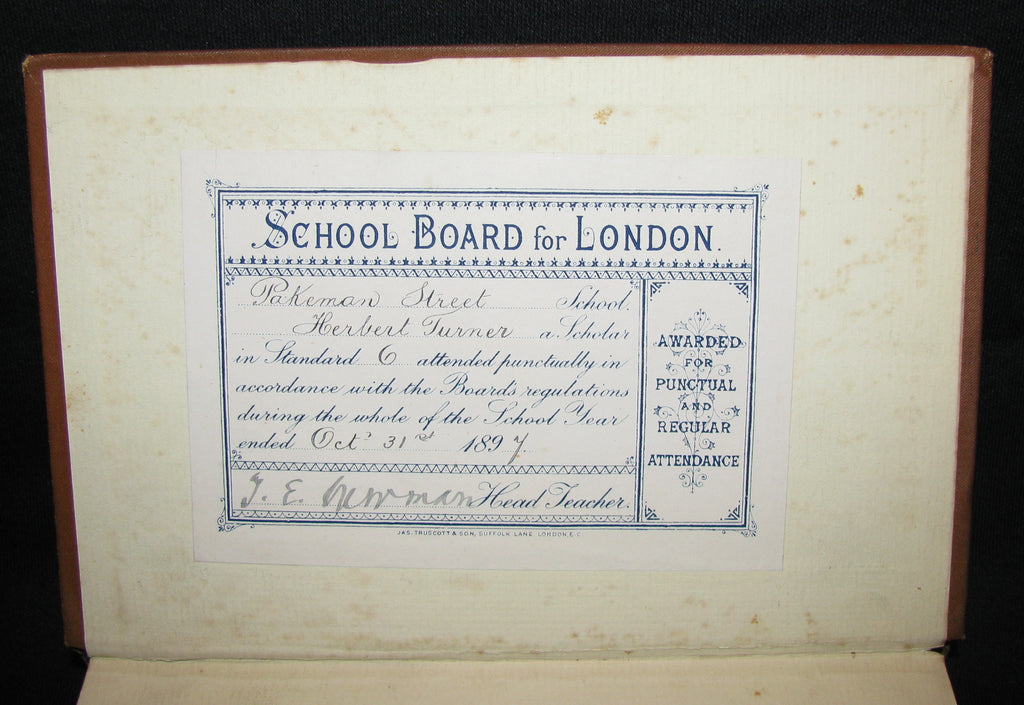 SCHOOL BOARD for LONDON.
Pakeman Street School.
Herbert Turner a Scholar
in Standard 6 attended punctually in
accordance with the Board's regulations
during the whole of the School Year
ended Oct 31st 1897.
J. E. Newman Head Teacher.
AWARDED
FOR
PUNCTUAL
AND
REGULAR
ATTENDANCE
JAS. TRUSCOTT & SON, SUFFOLK LANE LONDON, E.C.